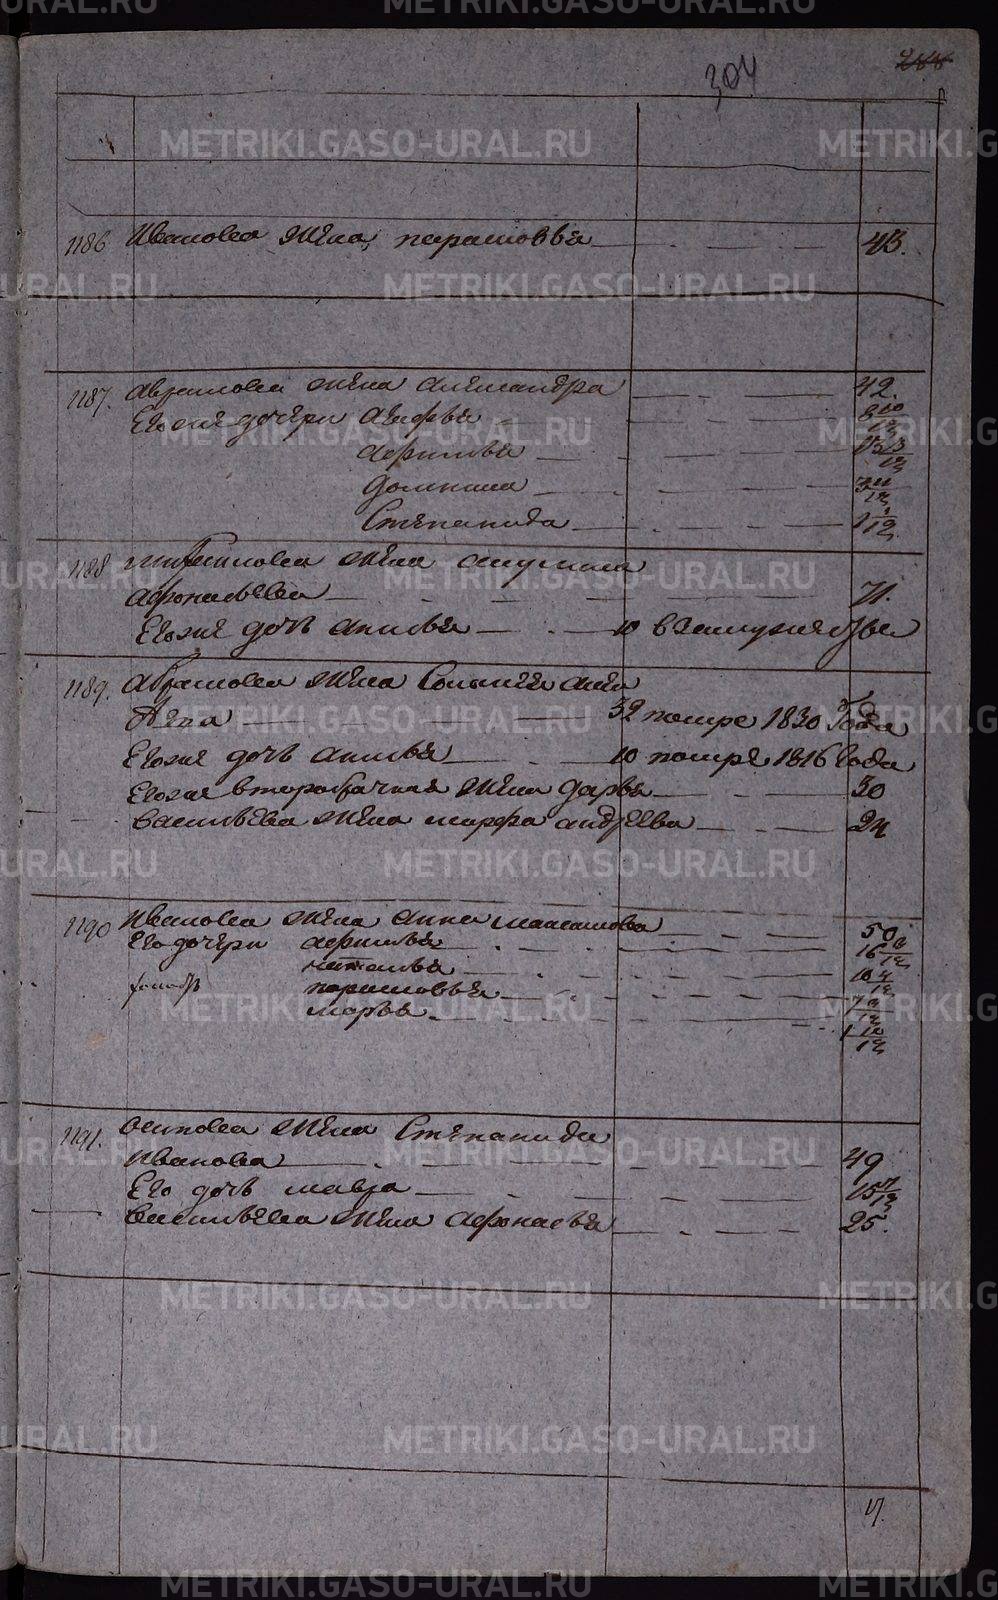 304
288
1186 Ивановa жена парасковья 43.
1187. Авраамова жена александра 42.
Его же дочери агафья 8 10/12
афимья
домнина 3 11/12
Степанида 1 1/12
1188 жена акулина
афонасьева 71.
Его же дочь анисья 10 в замужестве
1189. абрамова жена
32 помре 1830 Года
Его же дочь анисья 10 помре 1816 Года
Его же второбрачная жена дарья 30
васильева жена марфа андреева 24
1190 Иванова жена анна максимова 50
Его дочери афимья 16 /12
наталья 10 /12
парасковья 7 /12
марья 1 10/12
1191. осипова жена Степанида
Иванова 49
Его дочь мавра 15 7/12
васильева жена афонасья 25.
17.
METRIKI.GASO-URAL.RU